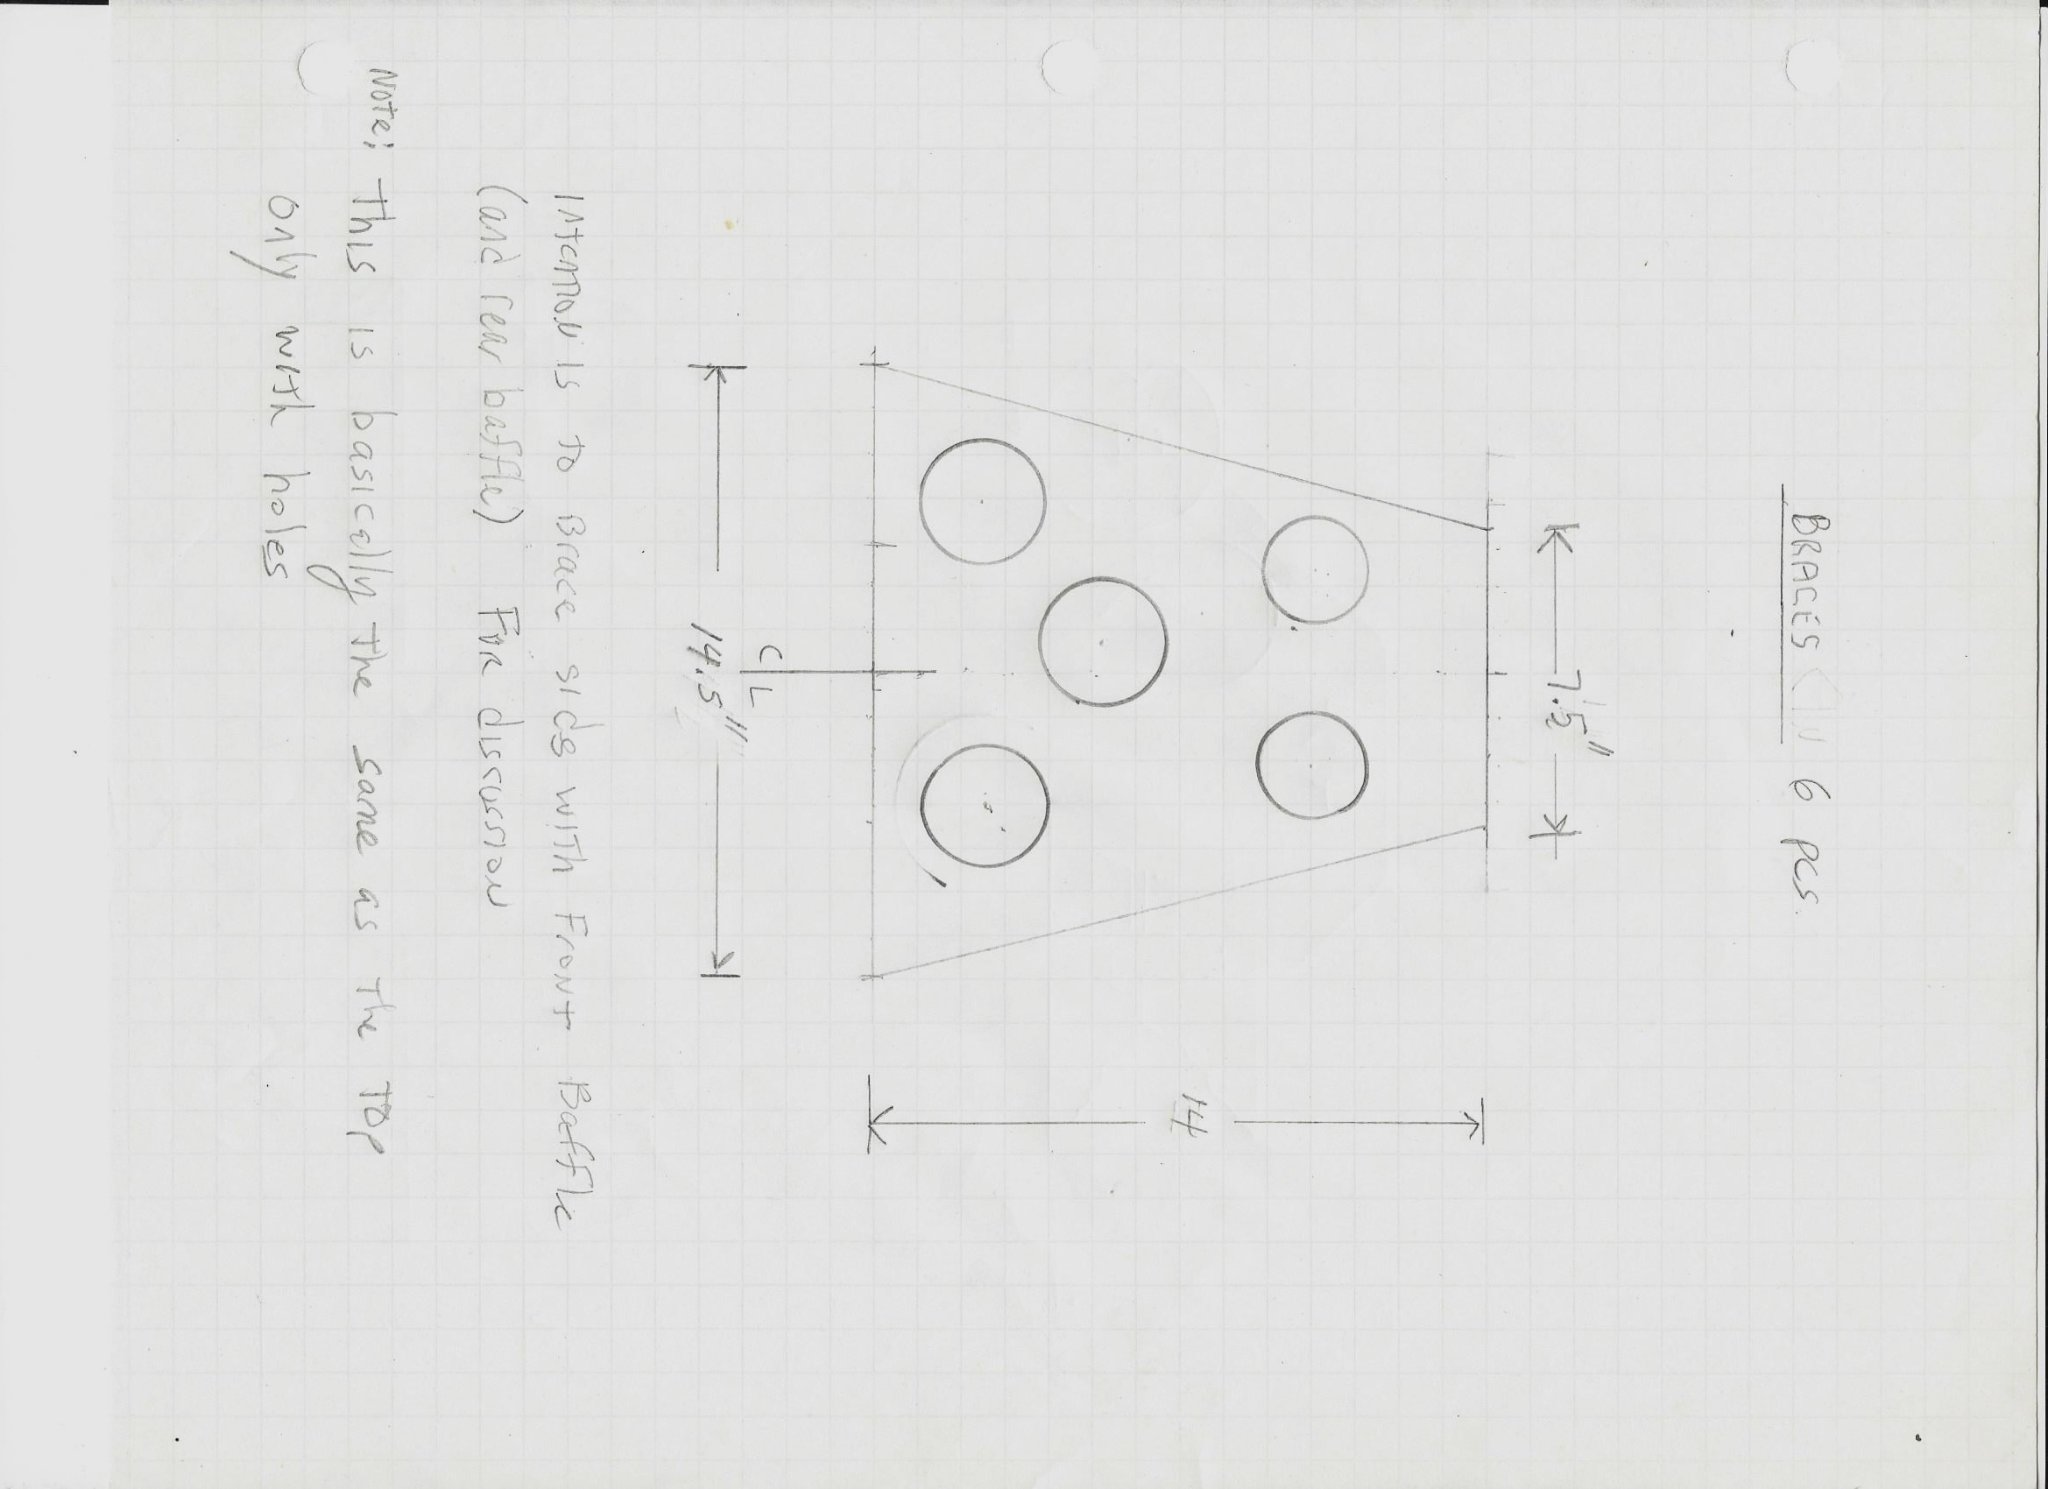 BRACES 6 pcs.
7.5"
14
C
L
14.5"
Intention is to Brace sides with Front Baffle
(and rear baffle) For discussion
Note: This is basically the same as the Top
only with holes